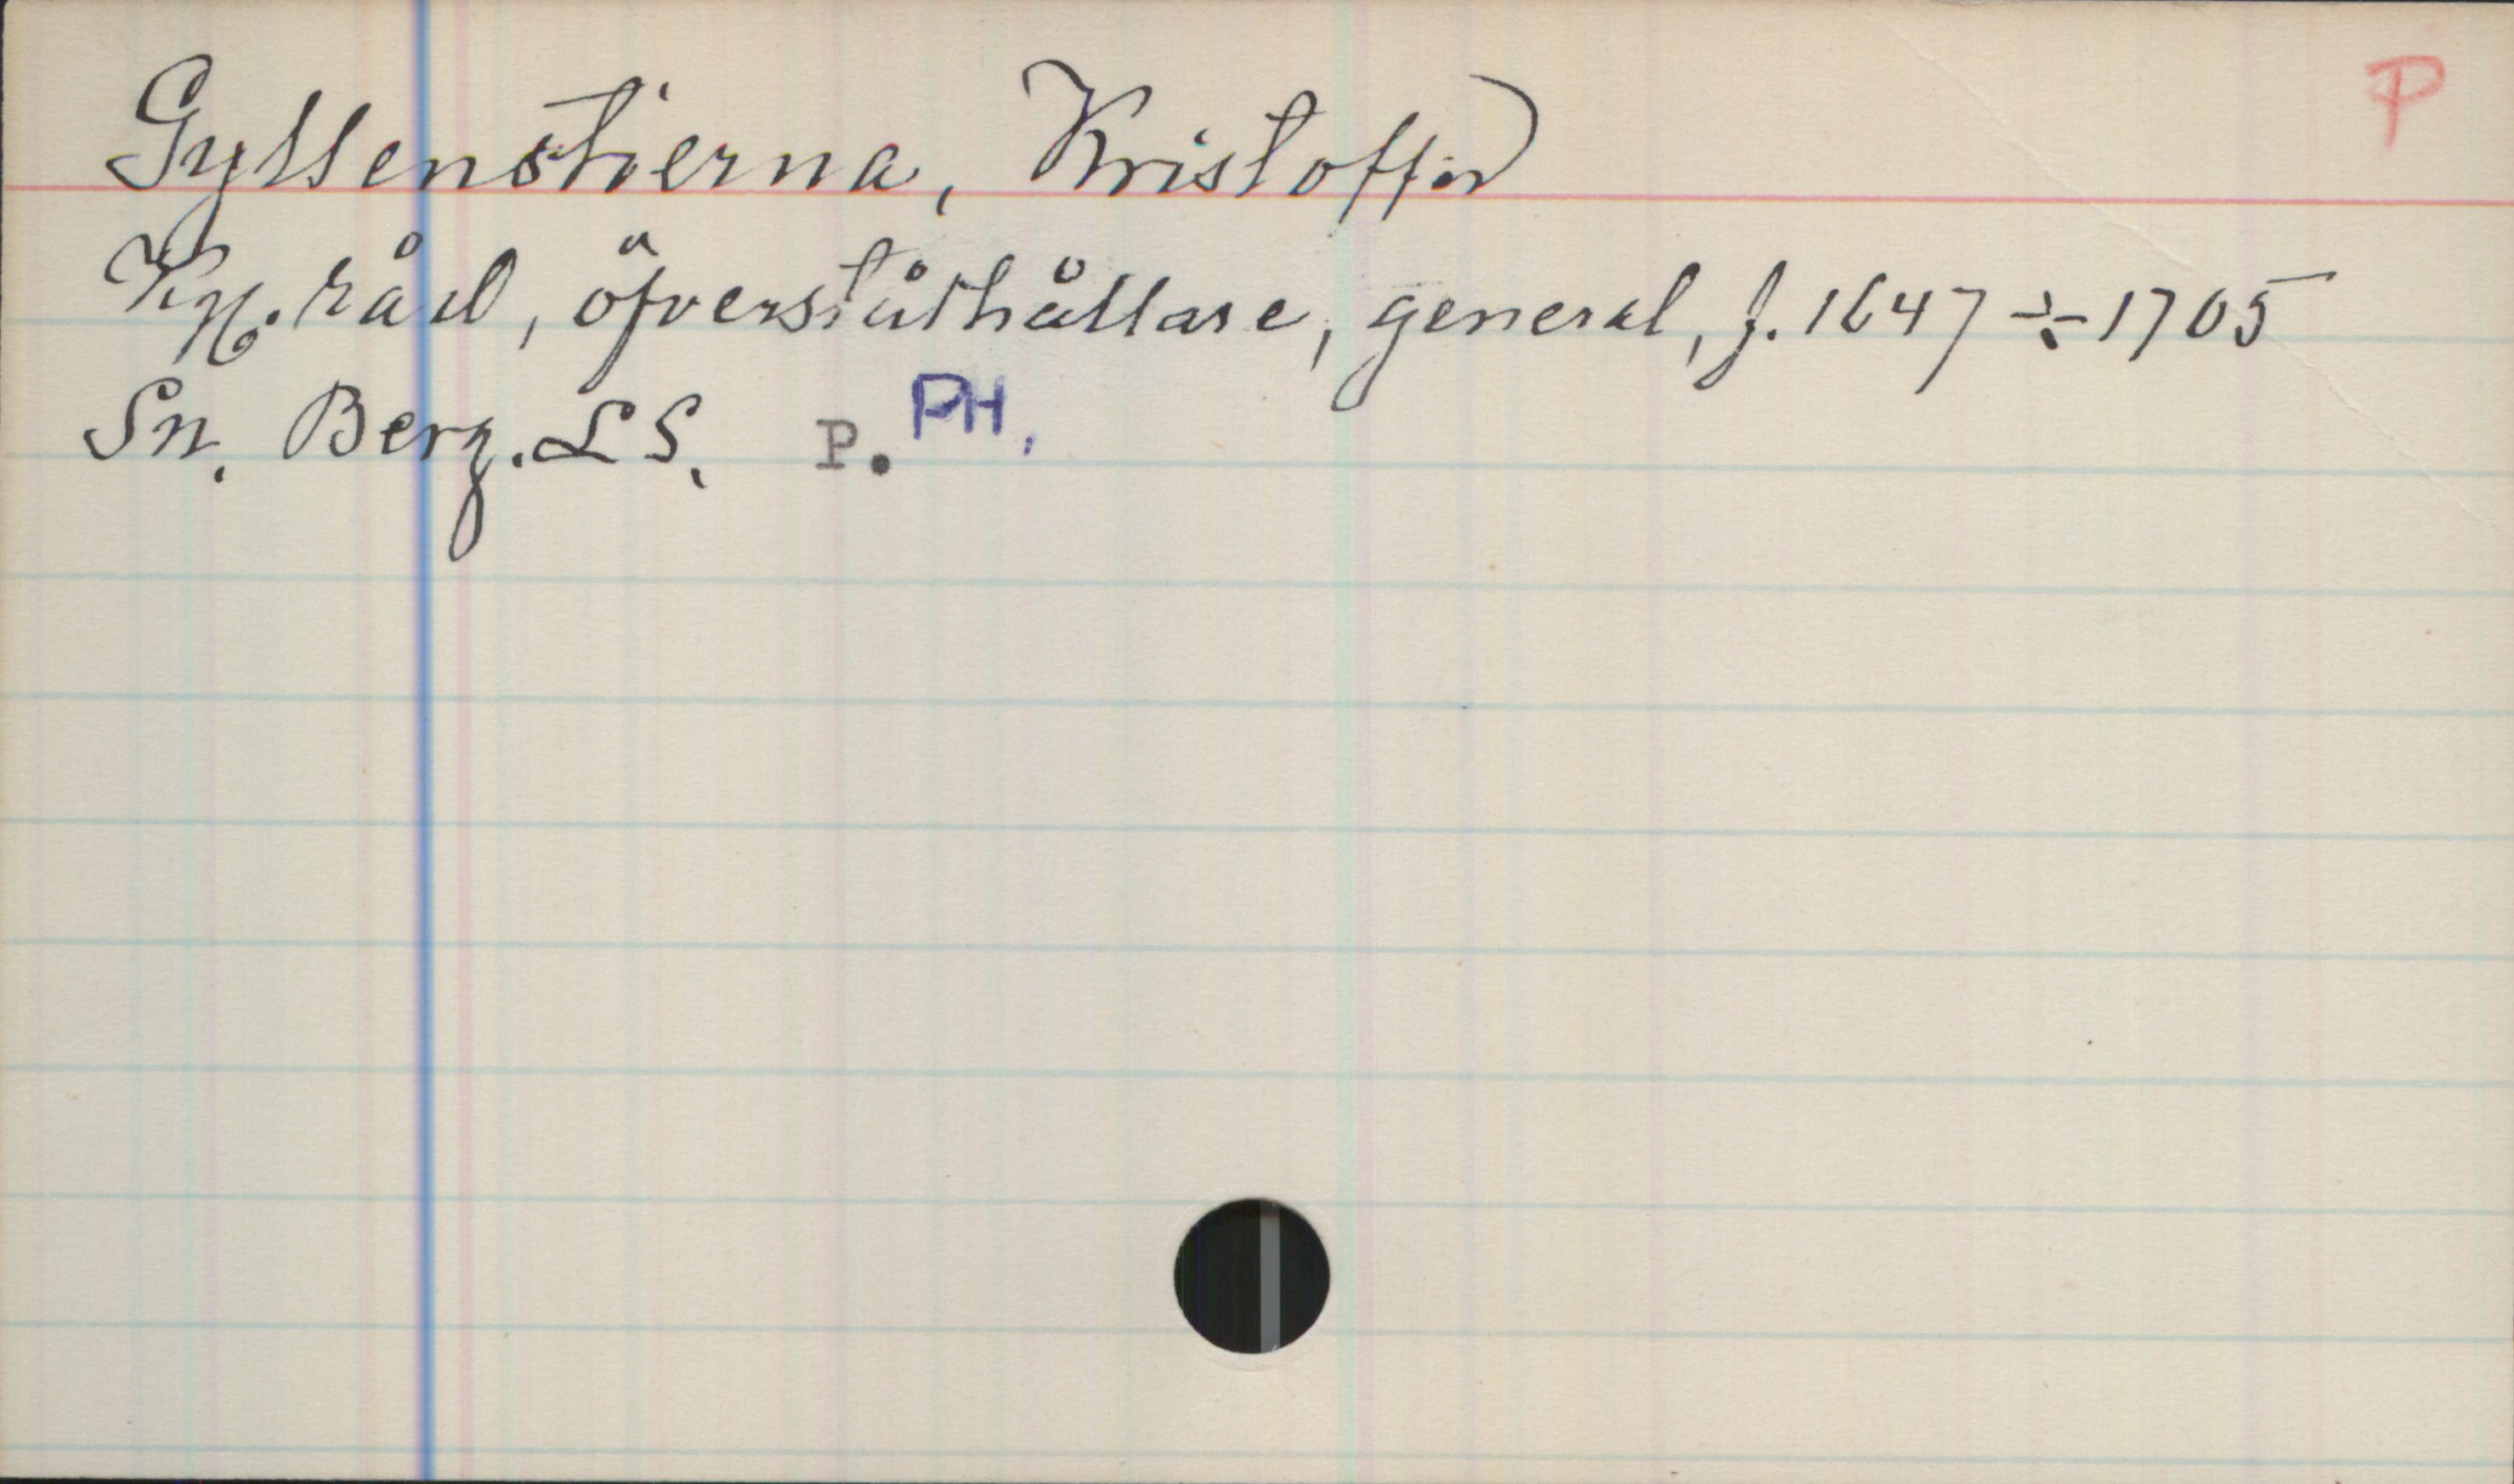 P
Gyllenstierna, Kristoffer
Kgl. råd, öfverståthållare, general, f. 1647 ÷ 1705
Sn. Berg. LS. P. PH.